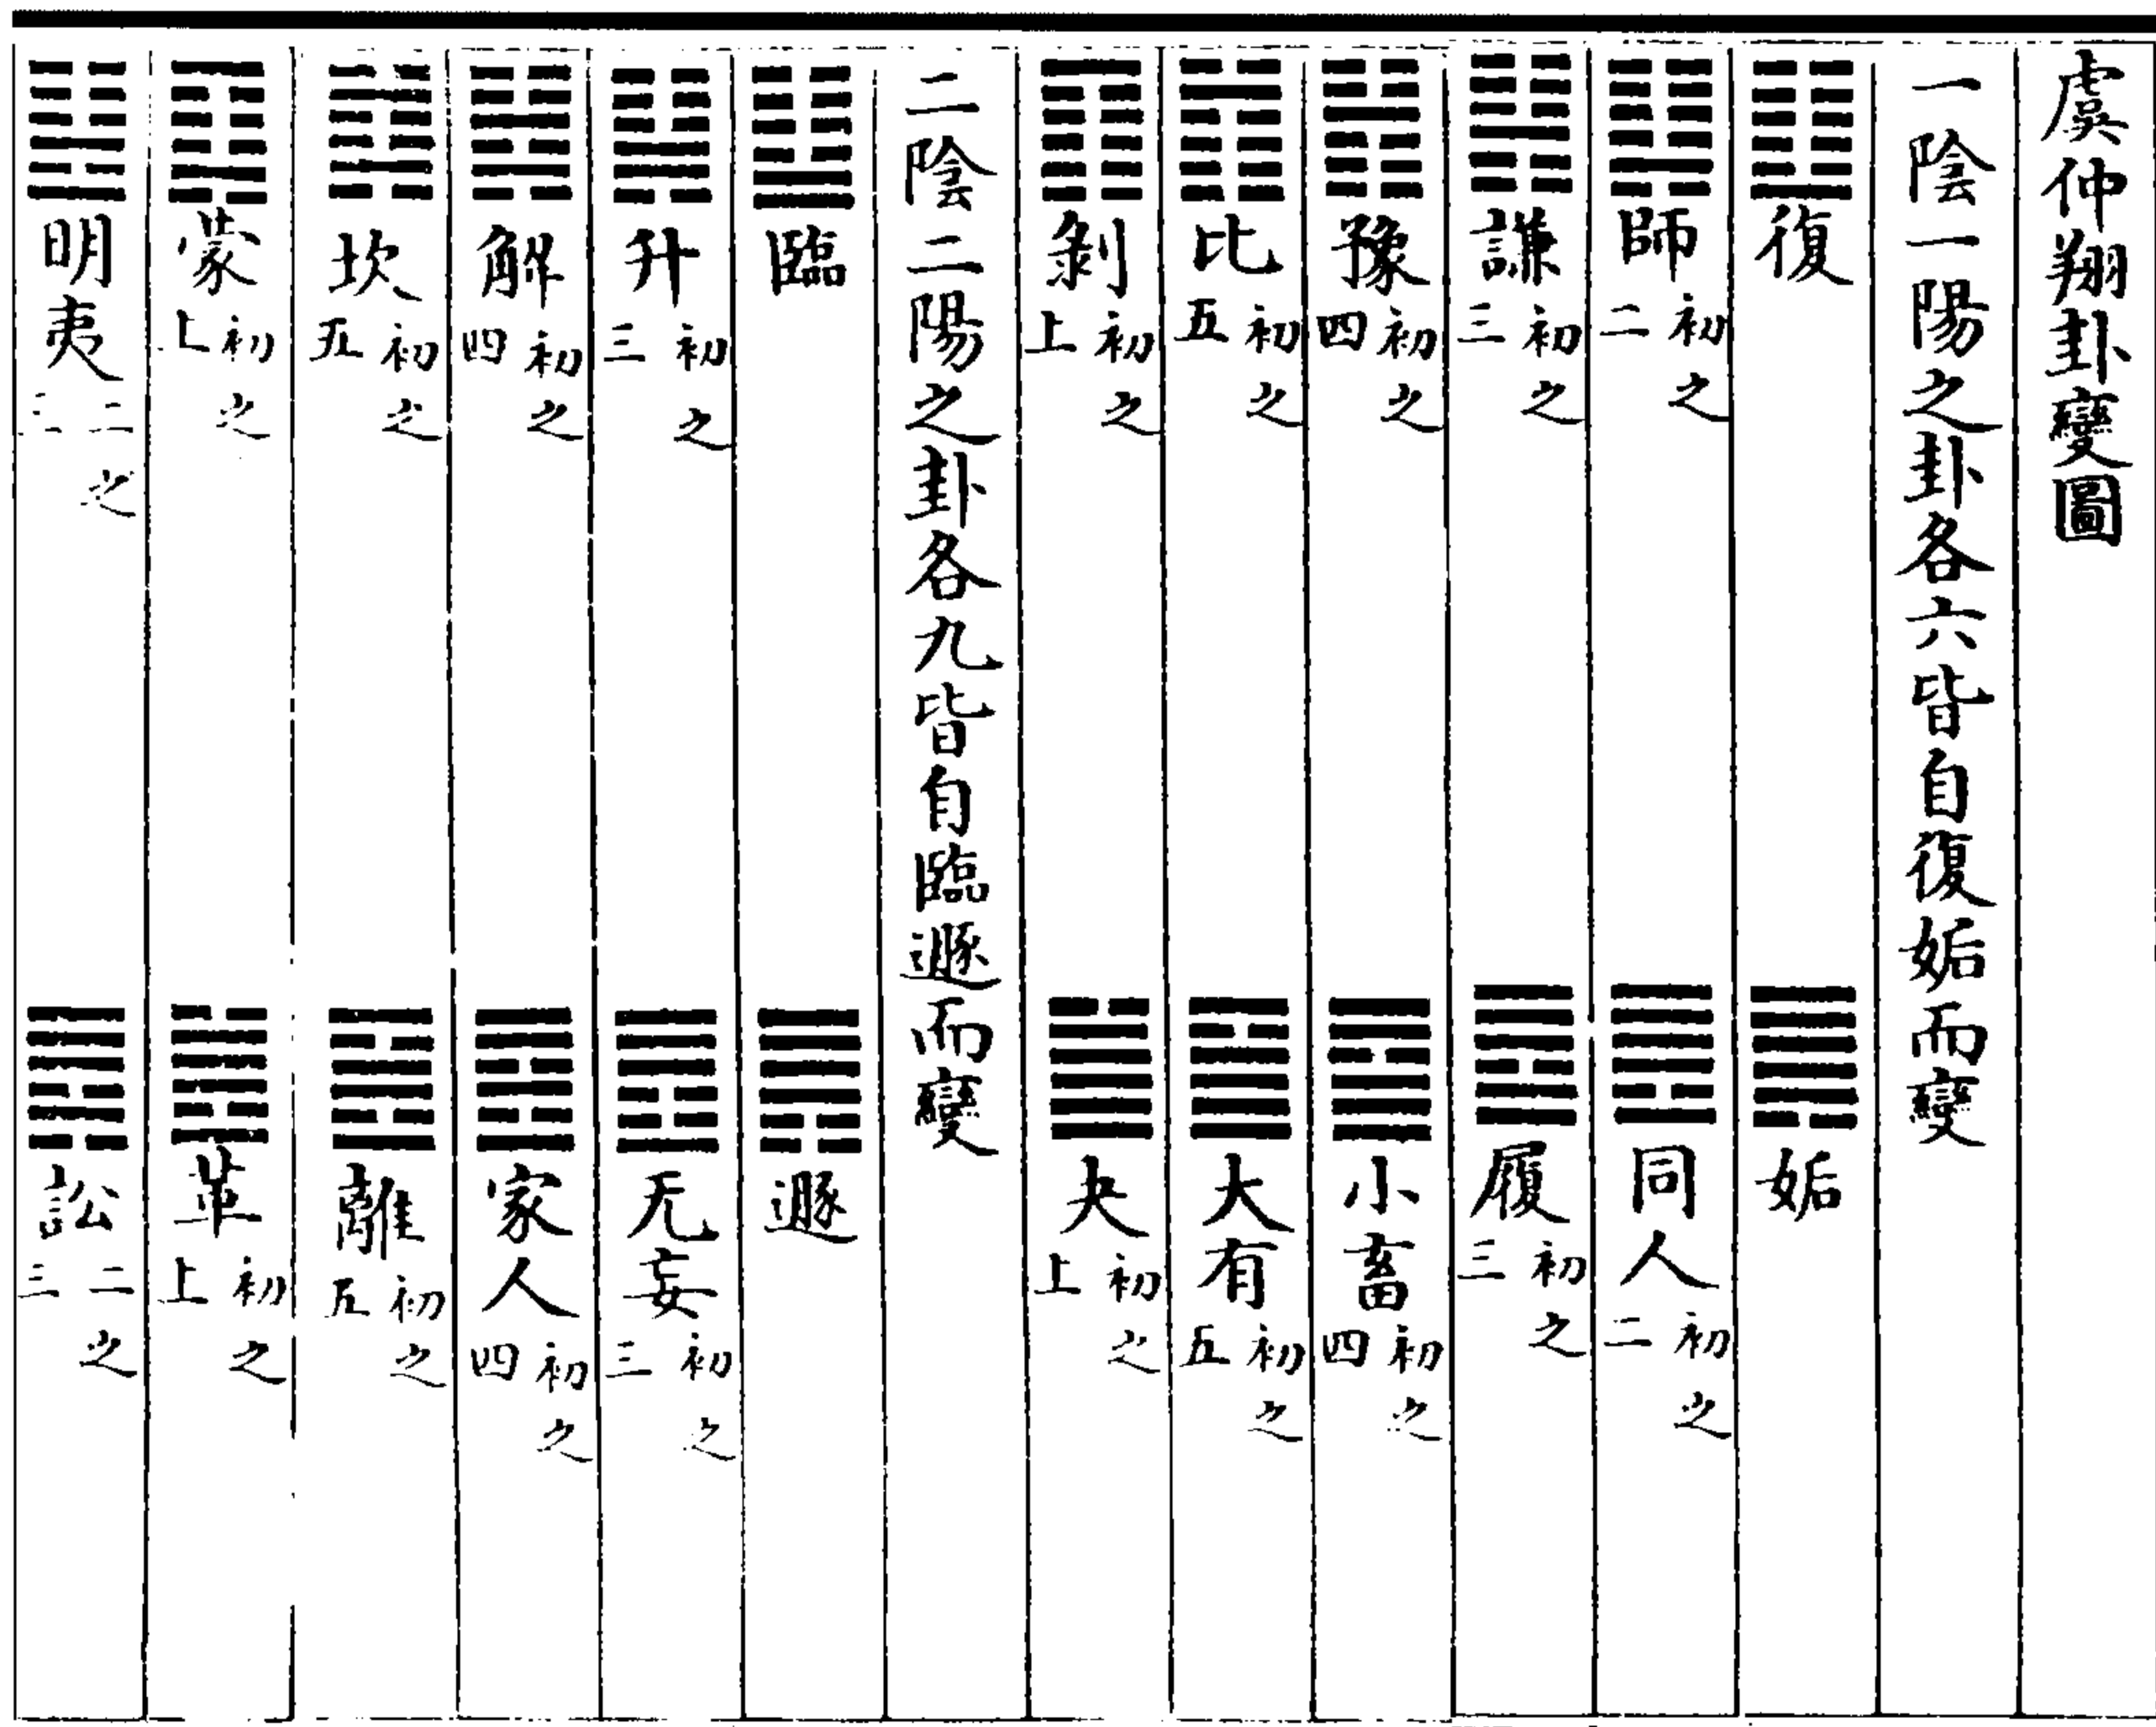 虞仲翔卦變圖
一陰一陽之卦各六皆自復姤而變
復 姤
師初之二 同人初之二
謙初之三 履初之三
豫初之四 小畜初之四
比初之五 大有初之五
剝初之上 夬初之上
二陰二陽之卦各九皆自臨遯而變
臨 遯
升初之三 无妄初之三
解初之四 家人初之四
坎初之五 離初之五
蒙初之上 革初之上
明夷二之三 訟二之三